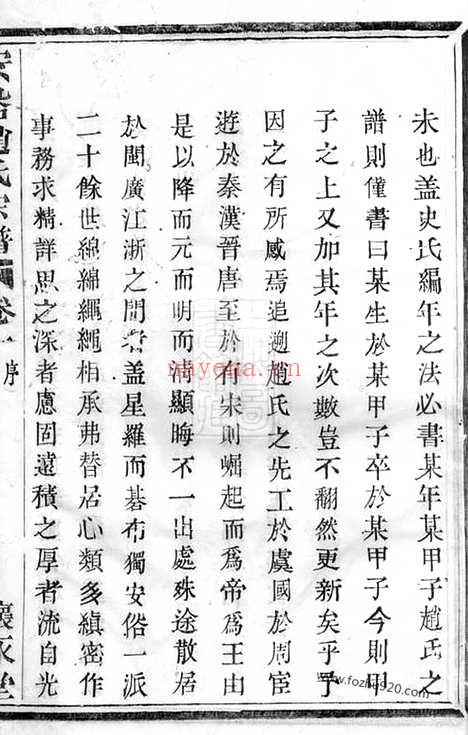 未也蓋史氏編年之法必書某年某甲子趙氏之
譜則僅書曰某生於某甲子卒於某甲子今則甲
子之上又加其年之次數豈不翻然更新矣乎予
因之有所感焉追遡趙氏之先工於虞國於周宦
遊於秦漢晉唐至於有宋則崛起而爲帝爲王由
是以降而元而明而清顯晦不一出處殊途散居
於閩廣江浙之間者蓋星羅而碁布獨安俗一派
二十餘世綿綿繩繩相承弗替居心類多縝密作
事務求精詳思之深者慮固遠積之厚者流自光
趙氏宗譜 卷一序
nayena.com
www.fozhu920.com